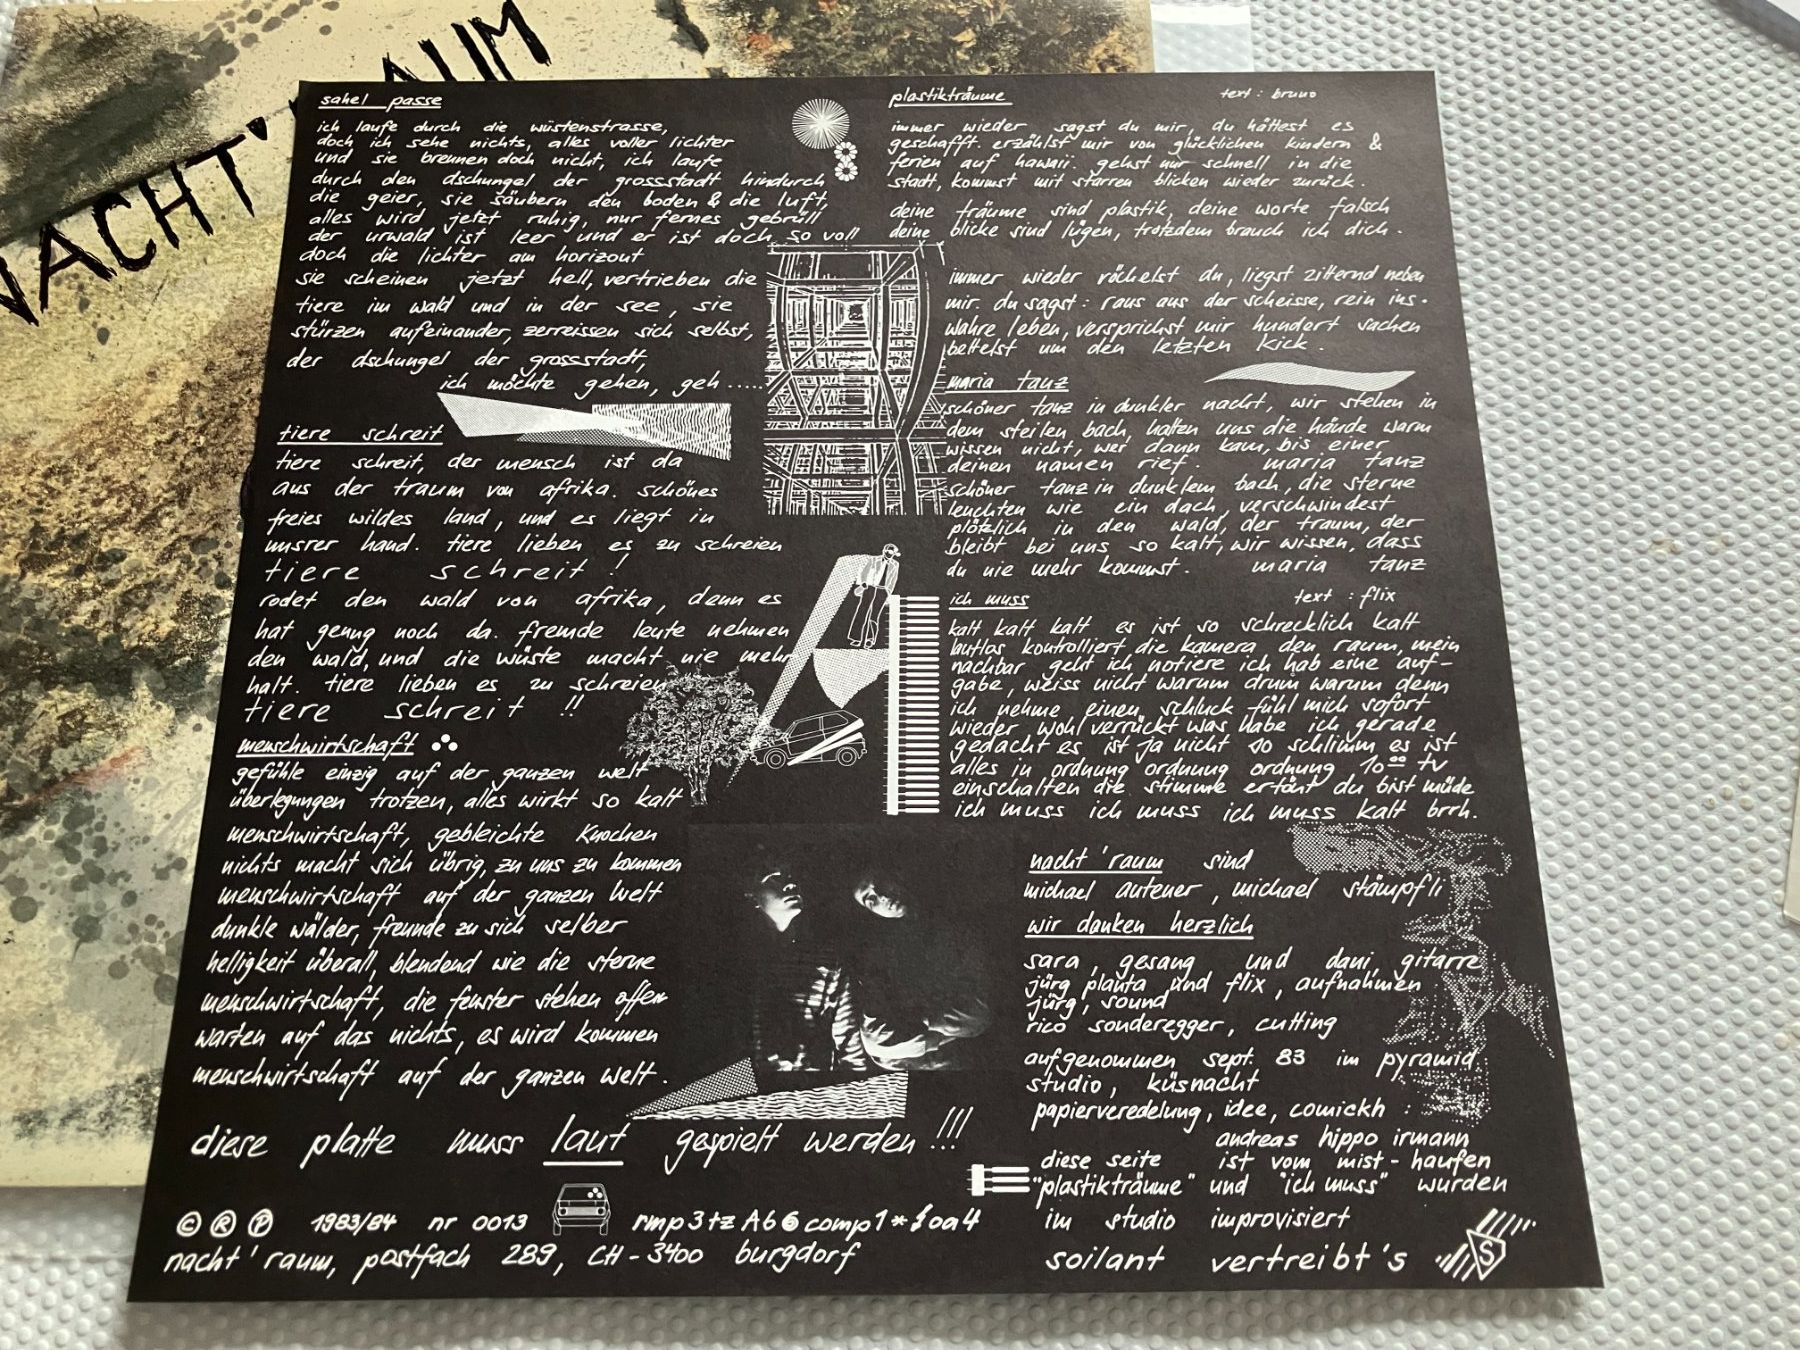 NACHT'RAUM
sahel passe
ich laufe durch die wüstenstrasse,
doch ich sehe nichts, alles voller lichter
und sie brennen doch nicht, ich laufe
durch den dschungel der grossstadt hindurch
die geier, sie säubern den boden & die luft,
alles wird jetzt ruhig, nur fernes gebrüll
der urwald ist leer und er ist doch so voll
doch die lichter am horizont
sie scheinen jetzt hell, vertrieben die
tiere im wald und in der see, sie
stürzen aufeinander, zerreissen sich selbst,
der dschungel der grossstadt,
ich möchte gehen, geh.....
tiere schreit
tiere schreit, der mensch ist da
aus der traum von afrika. schönes
freies wildes land, und es liegt in
unsrer hand. tiere lieben es zu schreien
tiere schreit !
rodet den wald von afrika, denn es
hat genug noch da. fremde leute nehmen
den wald, und die wüste macht nie mehr
halt. tiere lieben es zu schreien
tiere schreit !!
menschwirtschaft
gefühle einzig auf der ganzen welt
überlegungen trotzen, alles wirkt so kalt
menschwirtschaft, gebleichte knochen
nichts macht sich übrig, zu uns zu kommen
menschwirtschaft auf der ganzen welt
dunkle wälder, freunde zu sich selber
helligkeit überall, blendend wie die sterne
menschwirtschaft, die fenster stehen offen
warten auf das nichts, es wird kommen
menschwirtschaft auf der ganzen welt.
diese platte muss laut gespielt werden !!!
© ® ℗ 1983/84 nr 0013 rmp3tzA66comp1*$oa4
nacht'raum, postfach 289, CH-3400 burgdorf
plastikträume text: bruno
immer wieder sagst du mir, du hättest es
geschafft. erzählst mir von glücklichen kindern &
ferien auf hawaii. gehst nur schnell in die
stadt, kommst mit starren blicken wieder zurück.
deine träume sind plastik, deine worte falsch
deine blicke sind lügen, trotzdem brauch ich dich.
immer wieder röchelst du, liegst zitternd neben
mir. du sagst: raus aus der scheisse, rein ins.
wahre leben, versprichst mir hundert sachen
bettelst um den letzten kick.
maria tanz
schöner tanz in dunkler nacht, wir stehen in
dem steilen bach, halten uns die hände warm
wissen nicht, wer dann kam, bis einer
deinen namen rief. maria tanz
schöner tanz in dunklem bach, die sterne
leuchten wie ein dach, verschwindest
plötzlich in den wald, der traum, der
bleibt bei uns so kalt, wir wissen, dass
du nie mehr kommst. maria tanz
ich muss text: flix
kalt kalt kalt es ist so schrecklich kalt
lautlos kontrolliert die kamera den raum, mein
nachbar geht ich notiere ich hab eine auf-
gabe, weiss nicht warum drum warum denn
ich nehme einen schluck fühl mich sofort
wieder wohl verrückt was habe ich gerade
gedacht es ist ja nicht so schlimm es ist
alles in ordnung ordnung ordnung 10⁰⁰ tv
einschalten die stimme ertönt du bist müde
ich muss ich muss ich muss kalt brrh.
nacht'raum sind
michael autener, michael stämpfli
wir danken herzlich
sara, gesang und dani, gitarre
jürg planta und flix, aufnahmen
jürg, sound
rico sonderegger, cutting
aufgenommen sept. 83 im pyramid
studio, küsnacht
papierveredelung, idee, comickh :
andreas hippo irmann
diese seite ist vom mist-haufen
"plastikträume" und "ich muss" wurden
im studio improvisiert
soilant vertreibt's S